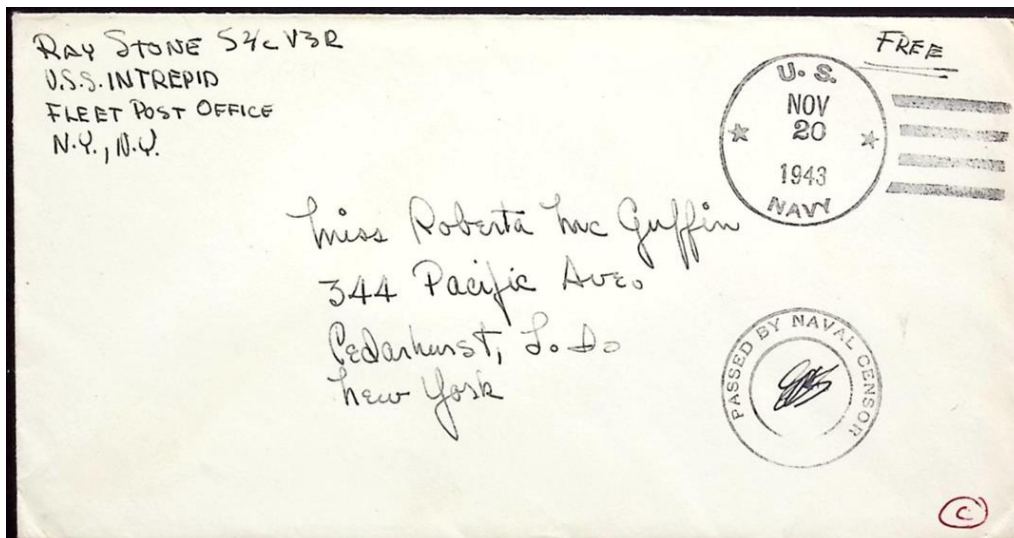 RAY STONE S2/c V3R
U.S.S. INTREPID
FLEET POST OFFICE
N.Y., N.Y.
FREE
U. S.
NOV
20
1943
NAVY
Miss Roberta Mc Guffin
344 Pacific Ave.
Cedarhurst, L. I.
New York
PASSED BY NAVAL CENSOR
C